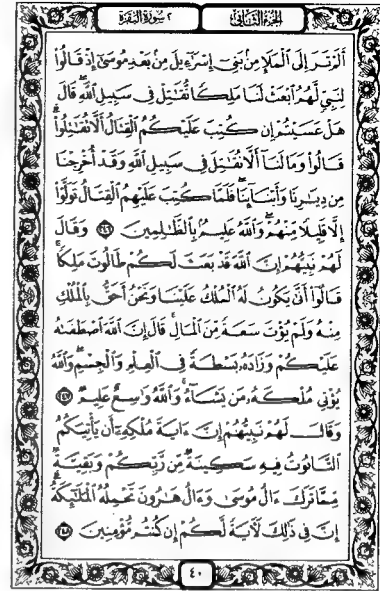 الجزء الثاني
٢ سورة البقرة
أَلَمْ تَرَ إِلَى ٱلْمَلَإِ مِنۢ بَنِىٓ إِسْرَٰٓءِيلَ مِنۢ بَعْدِ مُوسَىٰٓ إِذْ قَالُوا۟
لِنَبِىٍّ لَّهُمُ ٱبْعَثْ لَنَا مَلِكًا نُّقَٰتِلْ فِى سَبِيلِ ٱللَّهِ ۖ قَالَ
هَلْ عَسَيْتُمْ إِن كُتِبَ عَلَيْكُمُ ٱلْقِتَالُ أَلَّا تُقَٰتِلُوا۟ ۖ
قَالُوا۟ وَمَا لَنَآ أَلَّا نُقَٰتِلَ فِى سَبِيلِ ٱللَّهِ وَقَدْ أُخْرِجْنَا
مِن دِيَٰرِنَا وَأَبْنَآئِنَا ۖ فَلَمَّا كُتِبَ عَلَيْهِمُ ٱلْقِتَالُ تَوَلَّوْا۟
إِلَّا قَلِيلًا مِّنْهُمْ ۗ وَٱللَّهُ عَلِيمٌۢ بِٱلظَّٰلِمِينَ ٢٤٦ وَقَالَ
لَهُمْ نَبِيُّهُمْ إِنَّ ٱللَّهَ قَدْ بَعَثَ لَكُمْ طَالُوتَ مَلِكًا ۚ
قَالُوٓا۟ أَنَّىٰ يَكُونُ لَهُ ٱلْمُلْكُ عَلَيْنَا وَنَحْنُ أَحَقُّ بِٱلْمُلْكِ
مِنْهُ وَلَمْ يُؤْتَ سَعَةً مِّنَ ٱلْمَالِ ۚ قَالَ إِنَّ ٱللَّهَ ٱصْطَفَىٰهُ
عَلَيْكُمْ وَزَادَهُۥ بَسْطَةً فِى ٱلْعِلْمِ وَٱلْجِسْمِ ۖ وَٱللَّهُ
يُؤْتِى مُلْكَهُۥ مَن يَشَآءُ ۚ وَٱللَّهُ وَٰسِعٌ عَلِيمٌ ٢٤٧
وَقَالَ لَهُمْ نَبِيُّهُمْ إِنَّ ءَايَةَ مُلْكِهِۦٓ أَن يَأْتِيَكُمُ
ٱلتَّابُوتُ فِيهِ سَكِينَةٌ مِّن رَّبِّكُمْ وَبَقِيَّةٌ
مِّمَّا تَرَكَ ءَالُ مُوسَىٰ وَءَالُ هَٰرُونَ تَحْمِلُهُ ٱلْمَلَٰٓئِكَةُ ۚ
إِنَّ فِى ذَٰلِكَ لَءَايَةً لَّكُمْ إِن كُنتُم مُّؤْمِنِينَ ٢٤٨
٤٠